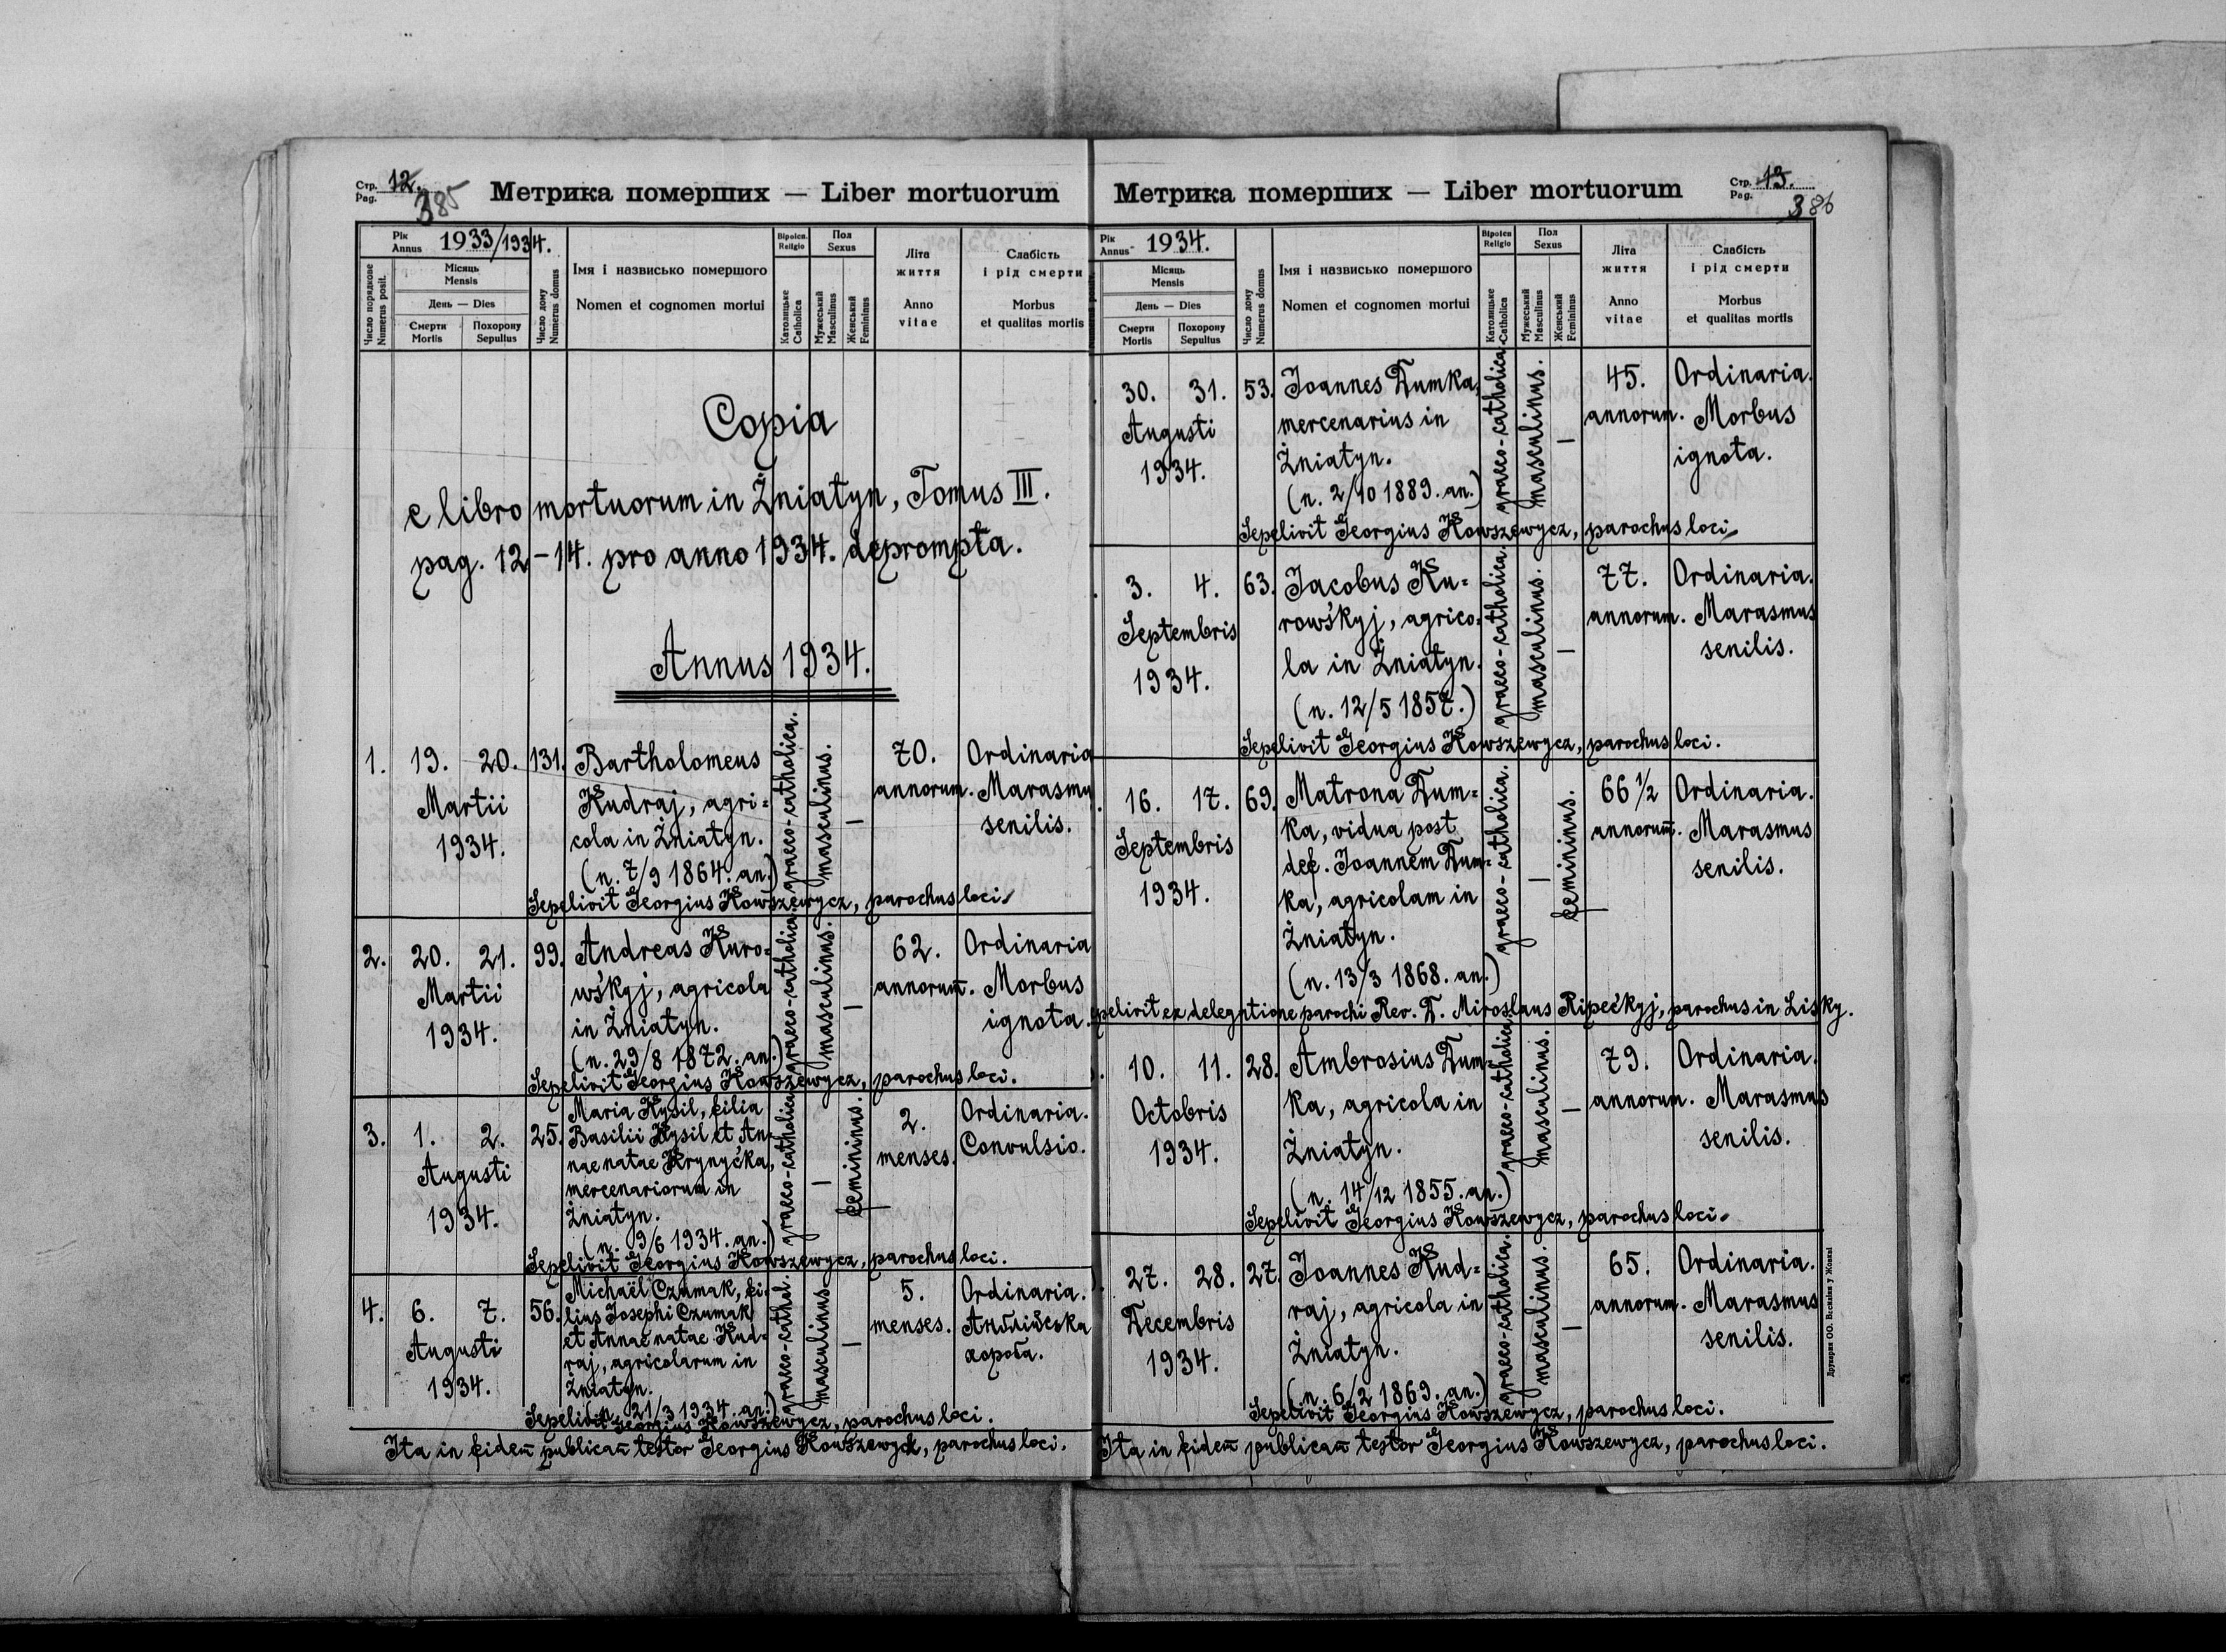 Стр. Pag. 12.
385
Метрика померших — Liber mortuorum
Рік Annus 1933/1934.
Число порядкове Numerus posit.
Місяць Mensis
День — Dies
Смерти Mortis
Похорону Sepultus
Число дому Numerus domus
Імя і назвисько помершого
Nomen et cognomen mortui
Віроісп. Religio
Католицьке Catholica
Пол Sexus
Мужеський Masculinus
Женський Femininus
Літа життя
Anno vitae
Слабість і рід смерти
Morbus et qualitas mortis
Copia
e libro mortuorum in Żniatyn, Tomus III.
pag. 12-14. pro anno 1934. deprompta.
Annus 1934.
1. 19. 20. 131. Bartholomeus 70. Ordinaria
Martii Kudraj, agri= annorum. Marasmu
1934. cola in Żniatyn. senilis.
(n. 7/9 1864. an.)
graeco-catholica.
masculinus.
—
Sepelivit Georgius Kowszewycz, parochus loci.
2. 20. 21. 99. Andreas Kuro= 62. Ordinaria
Martii wśkyj, agricola annorum̄. Morbus
1934. in Żniatyn. ignota.
(n. 29/8 1872. an.)
graeco-catholica.
masculinus.
—
Sepelivit Georgius Kowszewycz, parochus loci.
Maria Kysil, filia
3. 1. 2. 25. Basilii Kysil et An= 2. Ordinaria.
nae natae Krynyćka, menses. Convulsio.
Augusti mercenariorum in
1934. Żniatyn.
(n. 9/6 1934. an.)
graeco-catholica
—
femininus.
Sepelivit Georgius Kowszewycz, parochus loci.
Michaël Czumak, fi=
4. 6. 7. 56. lius Josephi Czumak 5. Ordinaria.
et Annae natae Kud= menses. Англійська
Augusti raj, agricolarum in хороба.
1934. Żniatyn.
(n. 21/3 1934. an.)
graeco-cathol.
masculinus
—
Sepelivit Georgius Kowszewycz, parochus loci.
Ita in fidem̄ publicam̄ testor Georgius Kowszewycz, parochus loci.
Стр. Pag. 13.
386
Метрика померших — Liber mortuorum
Рік Annus 1934.
Місяць Mensis
День — Dies
Смерти Mortis
Похорону Sepultus
Число дому Numerus domus
Імя і назвисько помершого
Nomen et cognomen mortui
Віроісп Religio
Католицьке Catholica
Пол Sexus
Мужеський Masculinus
Женський Femininus
Літа життя
Anno vitae
Слабість і рід смерти
Morbus et qualitas mortis
30. 31. 53. Joannes Dumka, 45. Ordinaria.
Augusti mercenarius in annorum. Morbus
1934. Żniatyn. ignota.
(n. 2/10 1889. an.)
graeco-catholica.
masculinus.
—
Sepelivit Georgius Kowszewycz, parochus loci.
3. 4. 63. Jacobus Ku= 77. Ordinaria.
Septembris rowśkyj, agrico= annorum. Marasmus
1934. la in Żniatyn. senilis.
(n. 12/5 1857.)
graeco-catholica.
masculinus.
—
Sepelivit Georgius Kowszewycz, parochus loci.
16. 17. 69. Matrona Dum= 66 1/2 Ordinaria.
Septembris ka, vidua post annorum̄. Marasmus
def. Joannem Dum= senilis.
1934. ka, agricolam in
Żniatyn.
(n. 13/3 1868. an.)
graeco-catholica.
—
femininus.
pelivit ex delegatione parochi Rev. D. Miroslaus Ripećkyj, parochus in Lisky.
10. 11. 28. Ambrosius Dum= 79. Ordinaria.
Octobris ka, agricola in annorum. Marasmus
1934. Żniatyn. senilis.
(n. 14/12 1855. an.)
graeco-catholica
masculinus.
—
Sepelivit Georgius Kowszewycz, parochus loci.
27. 28. 27. Joannes Kud= 65. Ordinaria.
Decembris raj, agricola in annorum. Marasmus
1934. Żniatyn. senilis.
(n. 6/2 1869. an.)
graeco-catholica.
masculinus.
—
Sepelivit Georgius Kowszewycz, parochus loci.
Ita in fidem̄ publicam̄ testor Georgius Kowszewycz, parochus loci.
Друкарня ОО. Василіян у Жовкві